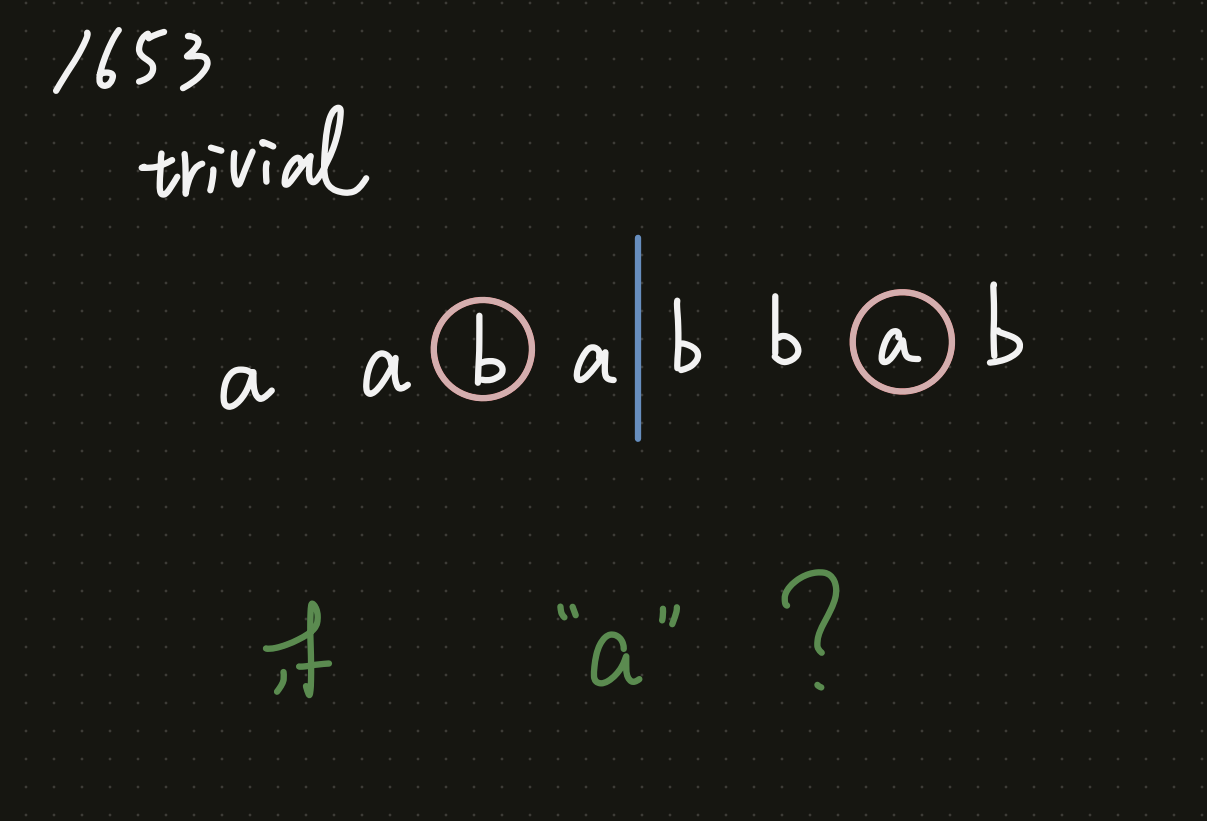 1653
trivial
a a b a b b a b
if "a" ?